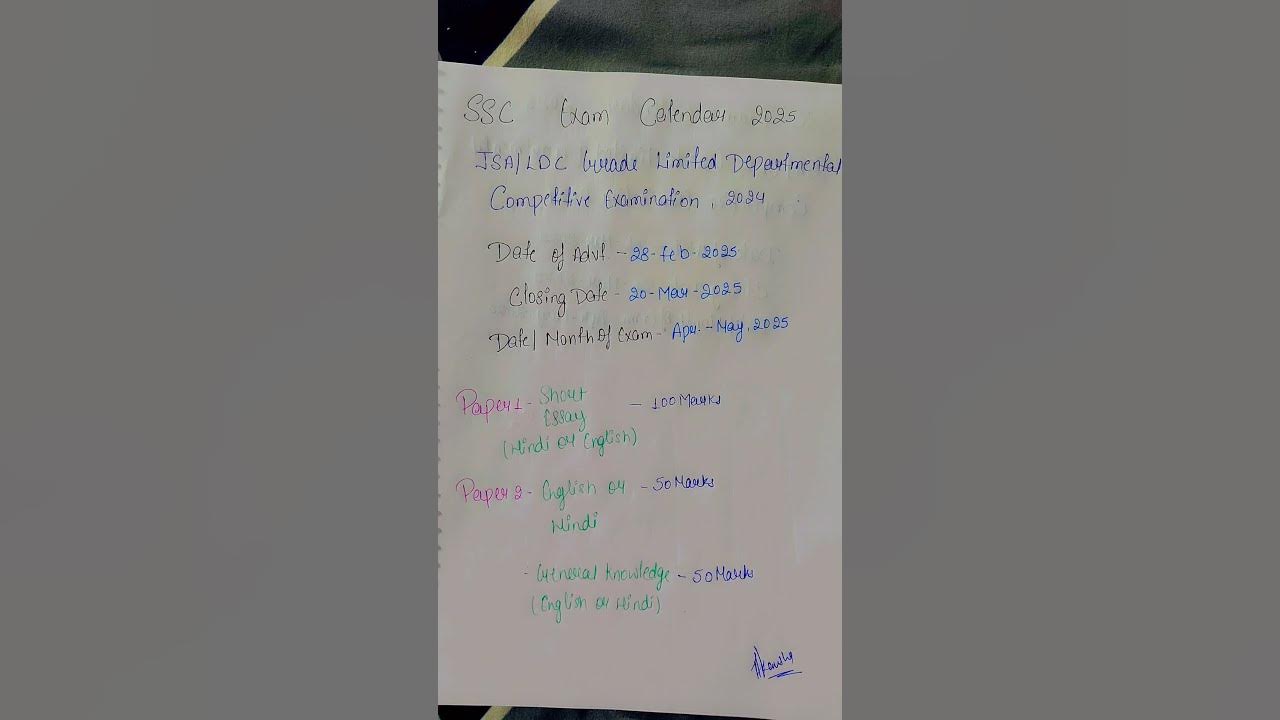 SSC Exam Calendar 2025
JSA/LDC Grade Limited Departmental
Competitive Examination, 2024
Date of Advt - 28-Feb-2025
Closing Date - 20-Mar-2025
Date/Month Of Exam - Apr. - May, 2025
Paper 1 - Short - 100 Marks
Essay
(Hindi or English)
Paper 2 - English or - 50 Marks
Hindi
- General Knowledge - 50 Marks
(English or Hindi)